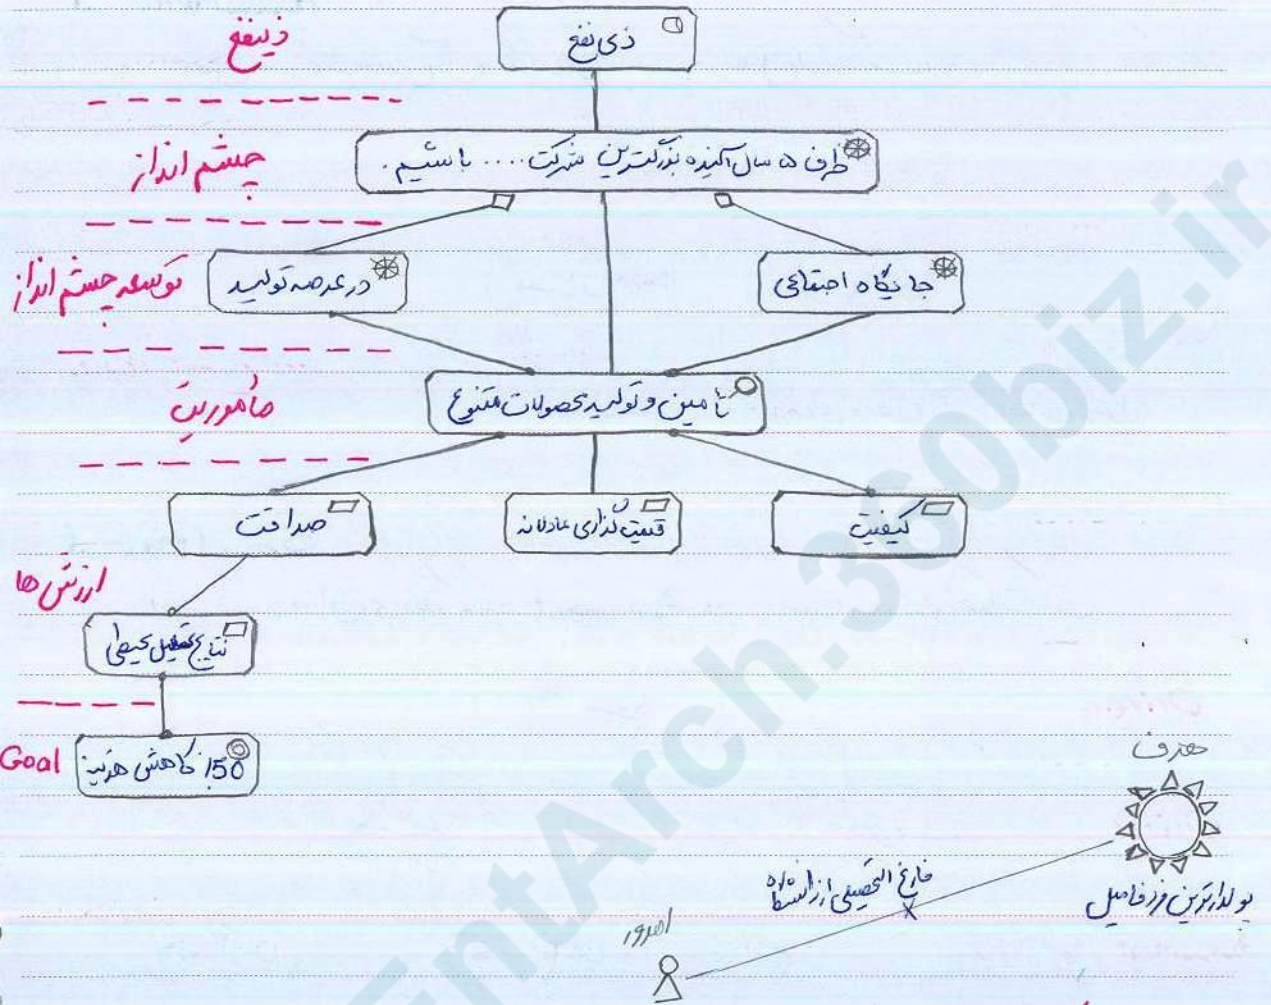 ذینفع
ذی نفع
چشم انداز
ظرف ۵ سال آینده بزرگترین شرکت .... باشیم.
توسعه چشم انداز
در عرصه تولید
جایگاه اجتماعی
مأموریت
تامین و تولید محصولات متنوع
صداقت
قیمت گذاری عادلانه
کیفیت
ارزش ها
نتایج تحلیل محیطی
Goal
50٪ کاهش هزینه
هدف
فارغ التحصیلی از دانشگاه
پولدارترین فرد فامیل
امروز
EntArch.360biz.ir